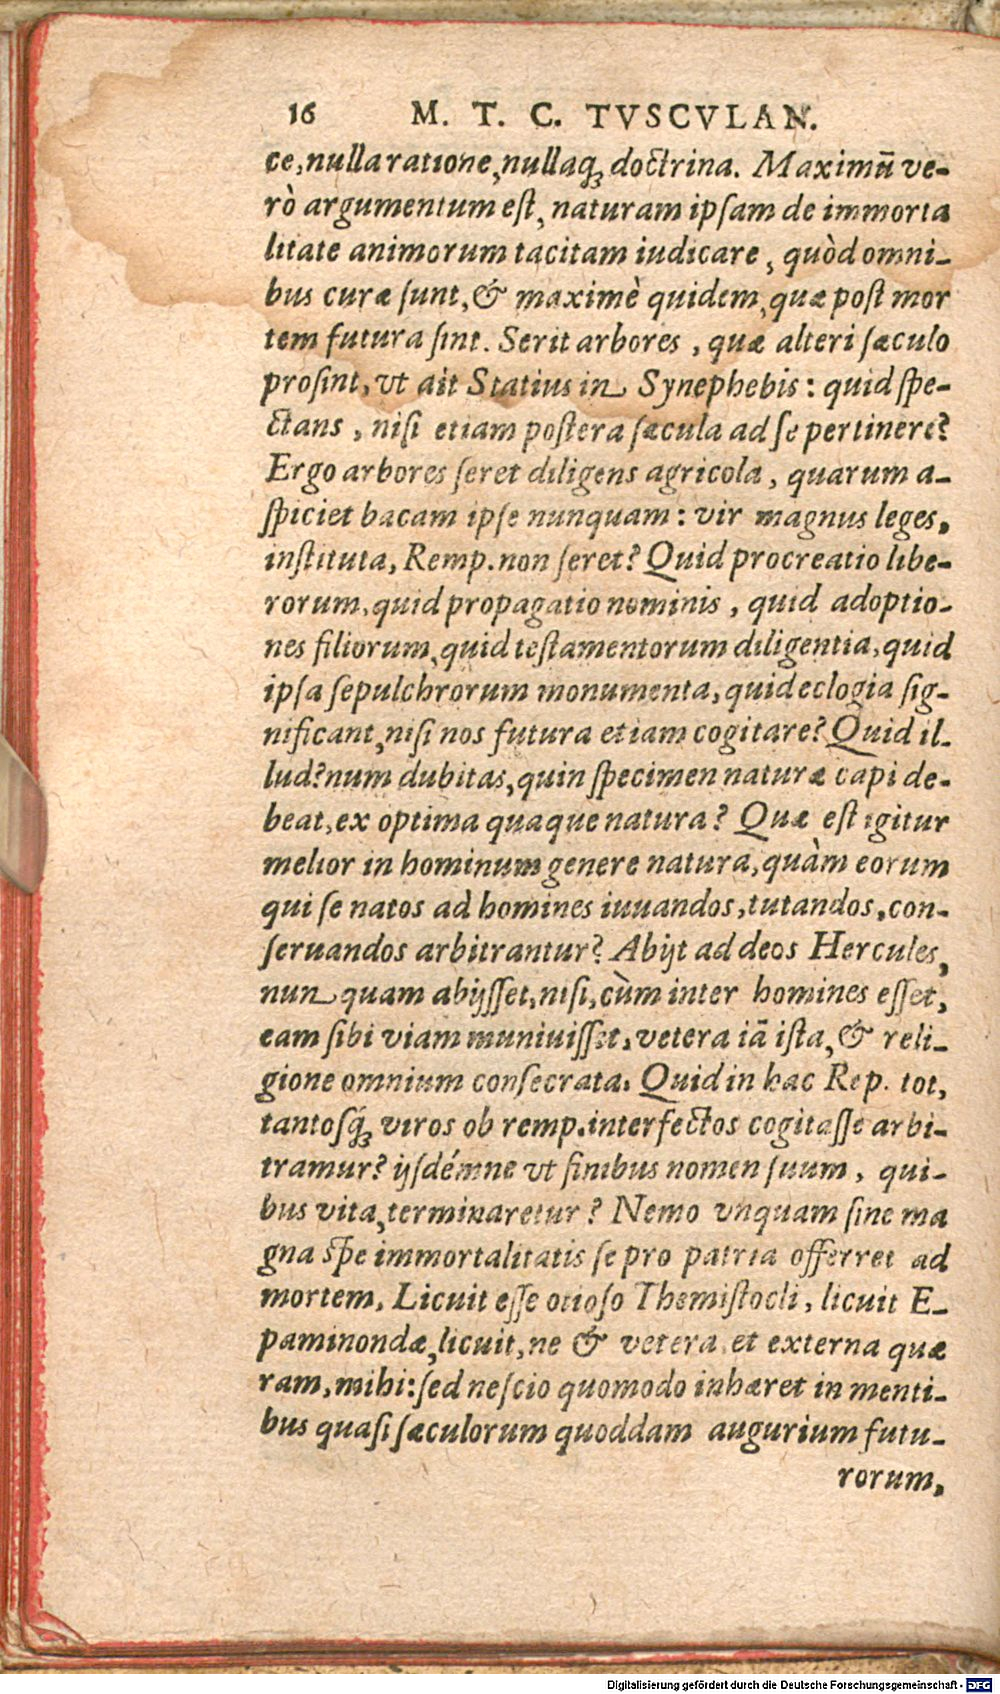 16 M. T. C. TVSCVLAN.
ce, nulla ratione, nullaq́ꝫ doctrina. Maximũ ve-
rò argumentum est, naturam ipsam de immorta
litate animorum tacitam iudicare, quòd omni-
bus curæ sunt, & maximè quidem, quæ post mor
tem futura sint. Serit arbores, quæ alteri sæculo
prosint, vt ait Statius in Synephebis: quid spe-
ctans, nisi etiam postera sæcula ad se pertinere?
Ergo arbores seret diligens agricola, quarum a-
spiciet bacam ipse nunquam: vir magnus leges,
instituta, Remp. non seret? Quid procreatio libe-
rorum, quid propagatio nominis, quid adoptio-
nes filiorum, quid testamentorum diligentia, quid
ipsa sepulchrorum monumenta, quid eclogia sig-
nificant, nisi nos futura etiam cogitare? Quid il-
lud? num dubitas, quin specimen naturæ capi de-
beat, ex optima quaque natura? Quæ est igitur
melior in hominum genere natura, quàm eorum
qui se natos ad homines iuuandos, tutandos, con-
seruandos arbitrantur? Abijt ad deos Hercules,
nun quam abijsset, nisi, cùm inter homines esset,
eam sibi viam muniuisset, vetera iã ista, & reli-
gione omnium consecrata. Quid in hac Rep. tot,
tantosq́ꝫ viros ob remp. interfectos cogitasse arbi-
tramur? ijsdémne vt finibus nomen suum, qui-
bus vita, terminaretur? Nemo vnquam sine ma
gna spe immortalitatis se pro patria offerret ad
mortem. Licuit esse otioso Themistocli, licuit E-
paminondæ, licuit, ne & vetera et externa quæ
ram, mihi: sed nescio quomodo inhæret in menti-
bus quasi sæculorum quoddam augurium futu-
rorum,
Digitalisierung gefördert durch die Deutsche Forschungsgemeinschaft - DFG